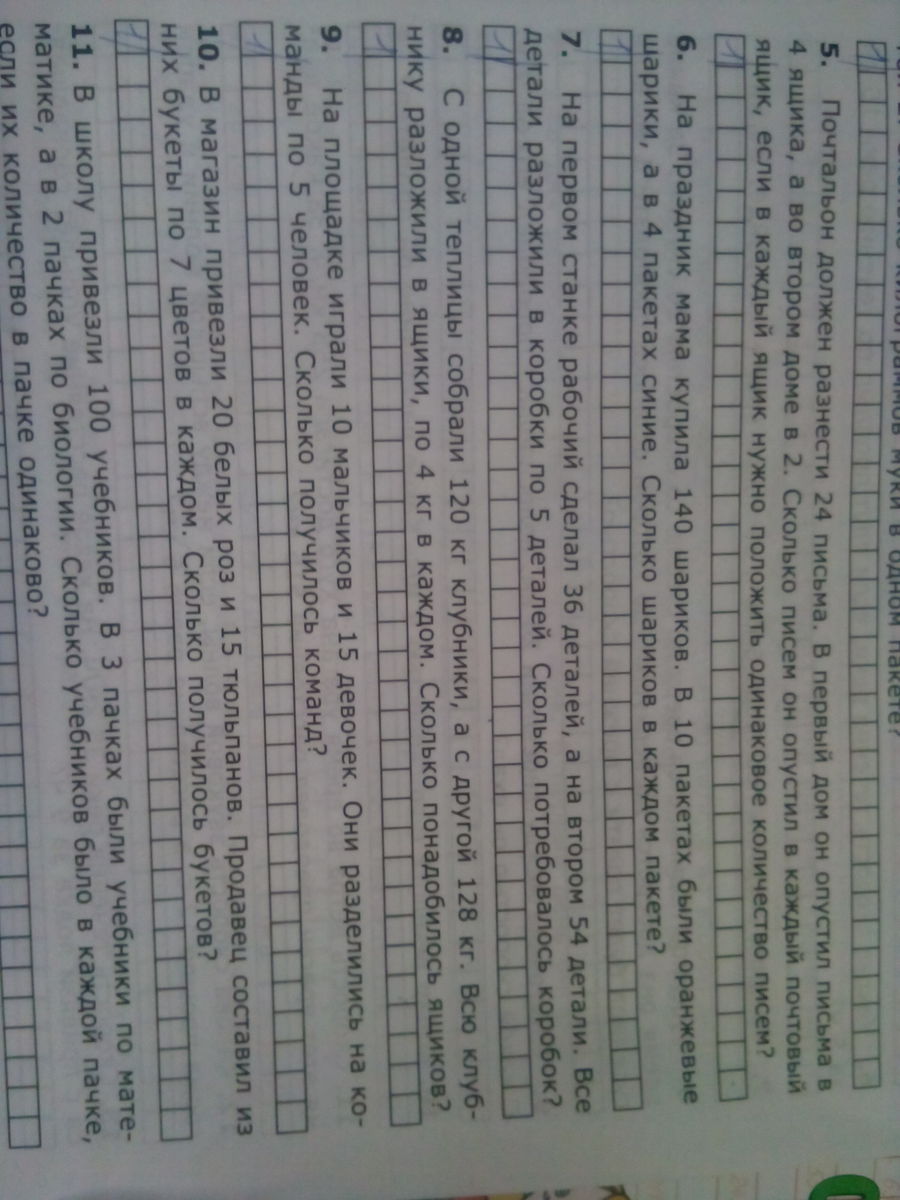 муки в одном пакете?
1)
5. Почтальон должен разнести 24 письма. В первый дом он опустил письма в
4 ящика, а во втором доме в 2. Сколько писем он опустил в каждый почтовый
ящик, если в каждый ящик нужно положить одинаковое количество писем?
1)
6. На праздник мама купила 140 шариков. В 10 пакетах были оранжевые
шарики, а в 4 пакетах синие. Сколько шариков в каждом пакете?
1)
7. На первом станке рабочий сделал 36 деталей, а на втором 54 детали. Все
детали разложили в коробки по 5 деталей. Сколько потребовалось коробок?
1)
8. С одной теплицы собрали 120 кг клубники, а с другой 128 кг. Всю клуб-
нику разложили в ящики, по 4 кг в каждом. Сколько понадобилось ящиков?
1)
9. На площадке играли 10 мальчиков и 15 девочек. Они разделились на ко-
манды по 5 человек. Сколько получилось команд?
1)
10. В магазин привезли 20 белых роз и 15 тюльпанов. Продавец составил из
них букеты по 7 цветов в каждом. Сколько получилось букетов?
1)
11. В школу привезли 100 учебников. В 3 пачках были учебники по мате-
матике, а в 2 пачках по биологии. Сколько учебников было в каждой пачке,
если их количество в пачке одинаково?